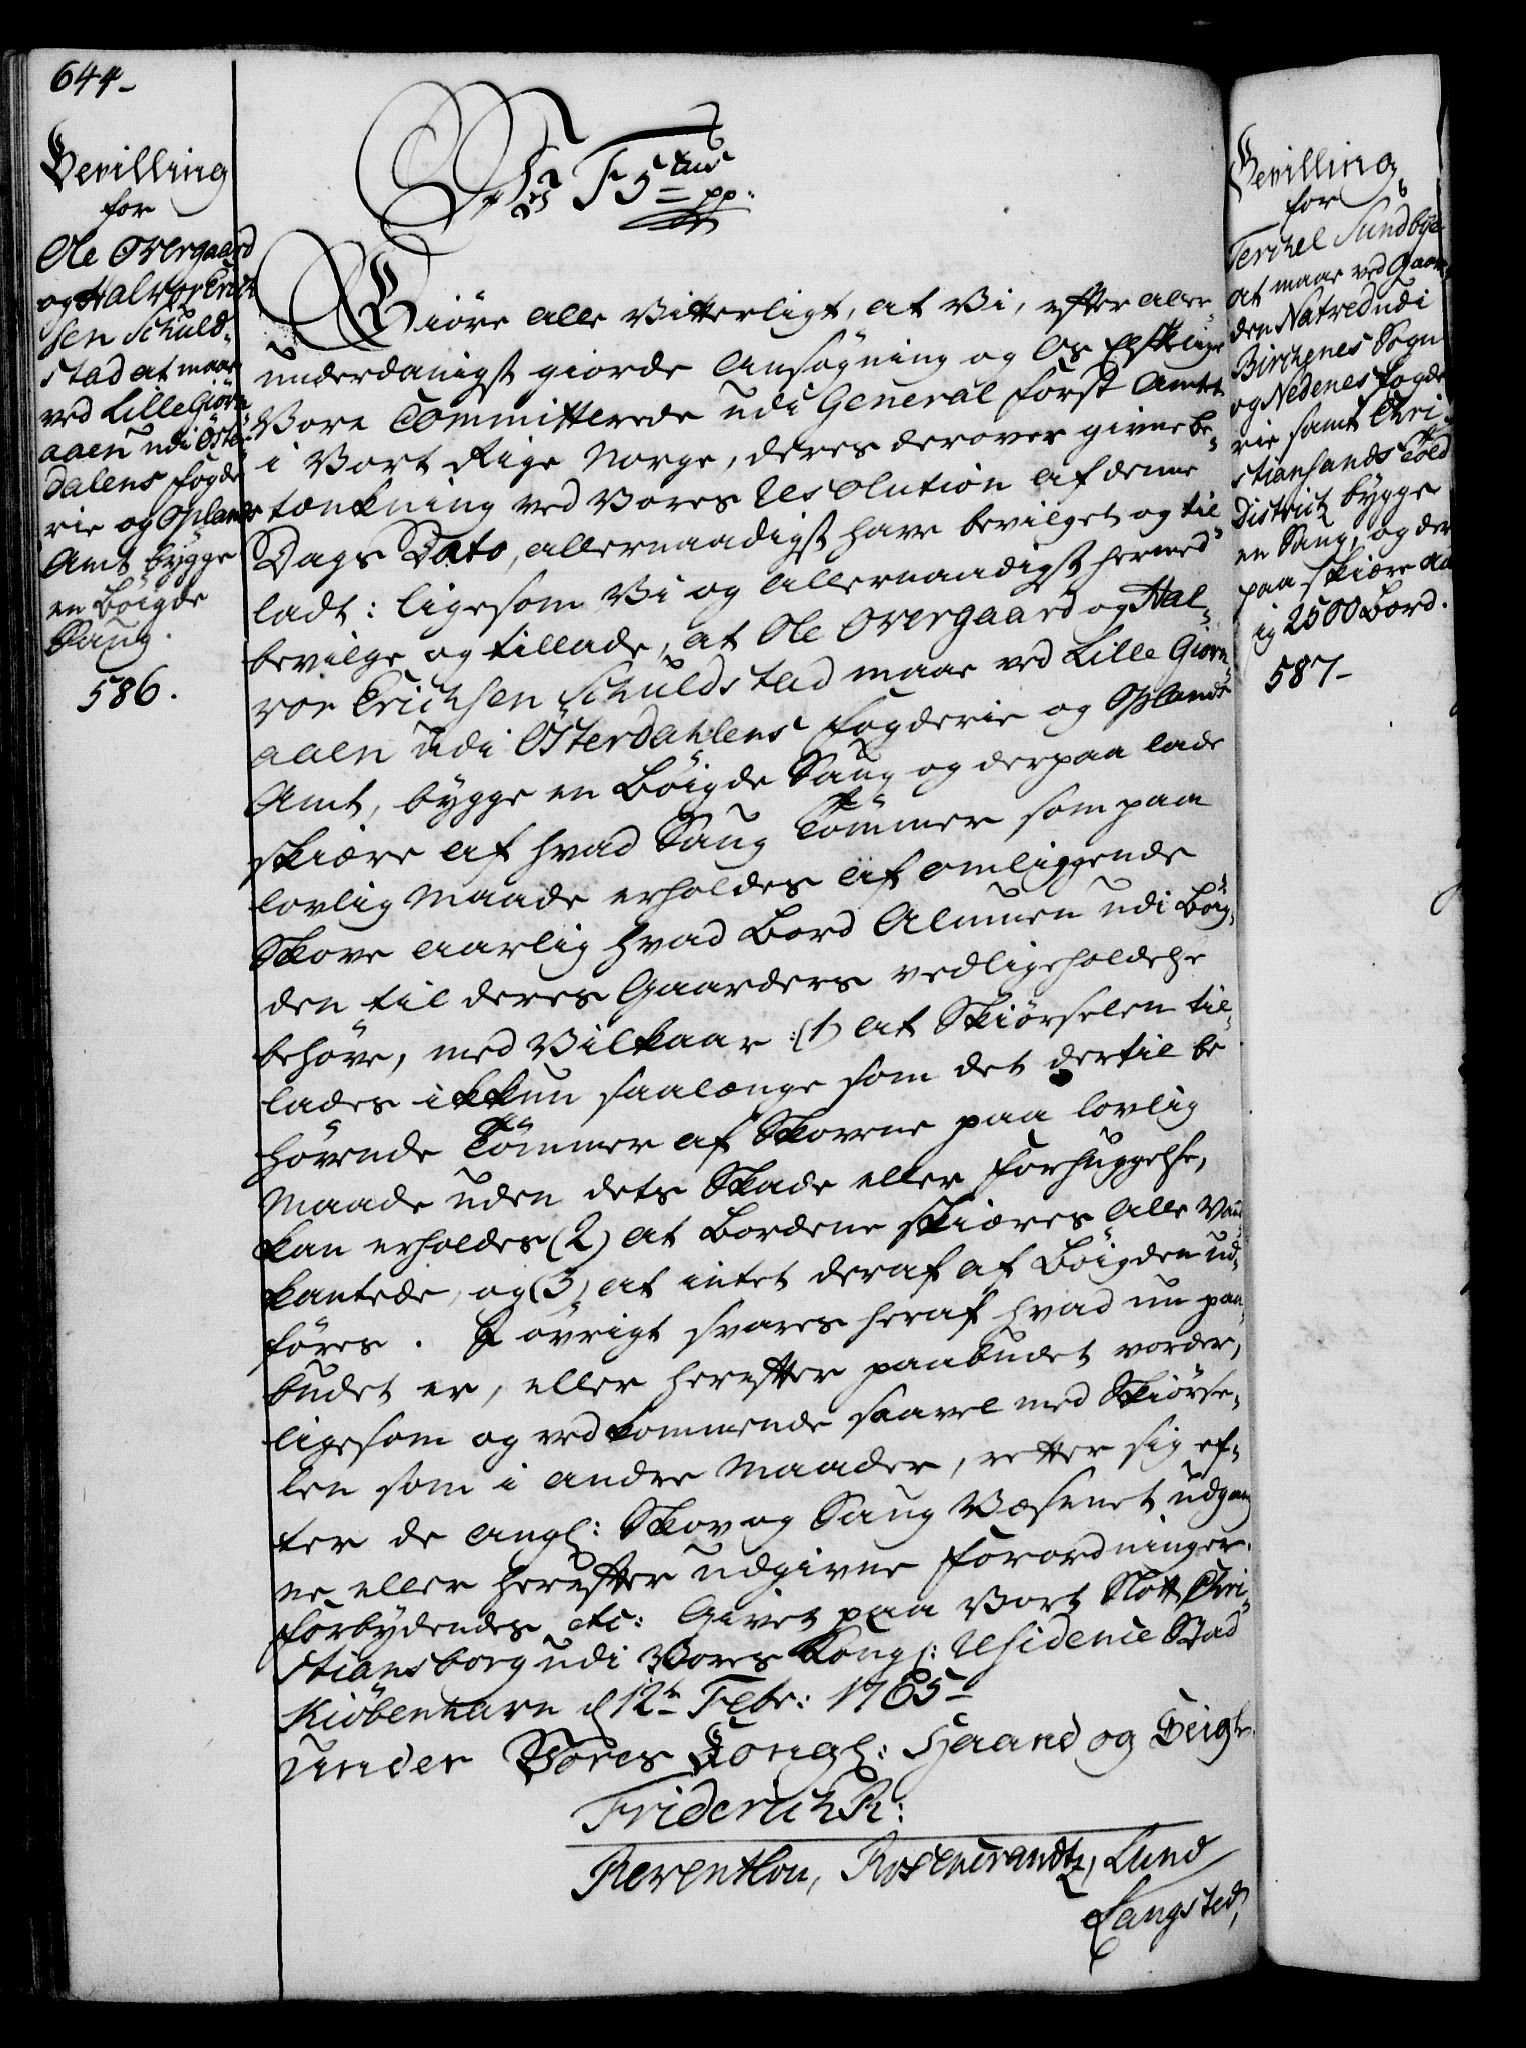 644-
Bevilling
for
Ole Overgaard
og Halvor Erich
sen Schuld-
stad at maae
ved Lille Giörn
aaen udi Öster
dalens Fogde
rie og Oplands
Amt bygge
en Böigde
Saug.
586.
Wi F 5te pp:
Giöre alle Vitterligt, at Vi, efter aller-
underdanigst giorde Ansögning og Os Elskelige
Vore Committerede udi General Forst Amtet
i Vort Rige Norge, deres derover givne be-
tænkning ved Vores Resolution af denne
Dags Dato, allernaadigst have bevilget og til-
ladt: ligesom Vi og allernaadigst hermed
bevilge og tillade, at Ole Overgaard og Hal-
vor Erichsen Schuldstad maae ved Lille Giörn-
aaen udi Österdahlens Fogderie og Oplands
Amt, bygge en Böigde Saug og derpaa lade
skiære af hvad Saug Tömmer som paa
lovlig Maade erholdes af omliggende
Skove aarlig hvad Bord Almuen udi Böig-
den til deres Gaarders vedligeholdelse
behöve, med Vilkaar: (1) at Skiörselen til-
lades ikkun saalænge som det dertil be
hövende Tömmer af Skovene paa lovlig
Maade uden dets Skade eller Forhuggelse,
kan erholdes (2) at Bordene skiæres alle Van-
kantede, og (3) at intet deraf af Böigden ud-
föres. I övrigt svares heraf hvad nu paa-
budet er, eller herefter paabudet vorder,
ligesom og vedkommende saavel med Skiörse-
len som i andre Maader, retter sig ef-
ter de angl: Skov og Saug Væsenet udgang
ne eller herefter udgivne Forordninger.
Forbydendes etc: Givet paa Vort Slott Chri-
stiansborg udi Vores Kongl: Residence Stad
Kiöbenhavn d 12te Febr: 1765-
under Vores Kongl: Haand og Seigl.
Friderich R:
Reventlou, Rosencrandtz, Lund
Langsted,
Bevilling
for
Terchel Sundbye
at maae ved Gaar-
den Natved udi
Birchenes Sogn
og Nedenes Fogde
rie samt Chri-
stiansands Told
District bygge
en Saug, og der
paa skiære aar
ig 2500 Bord.
587-